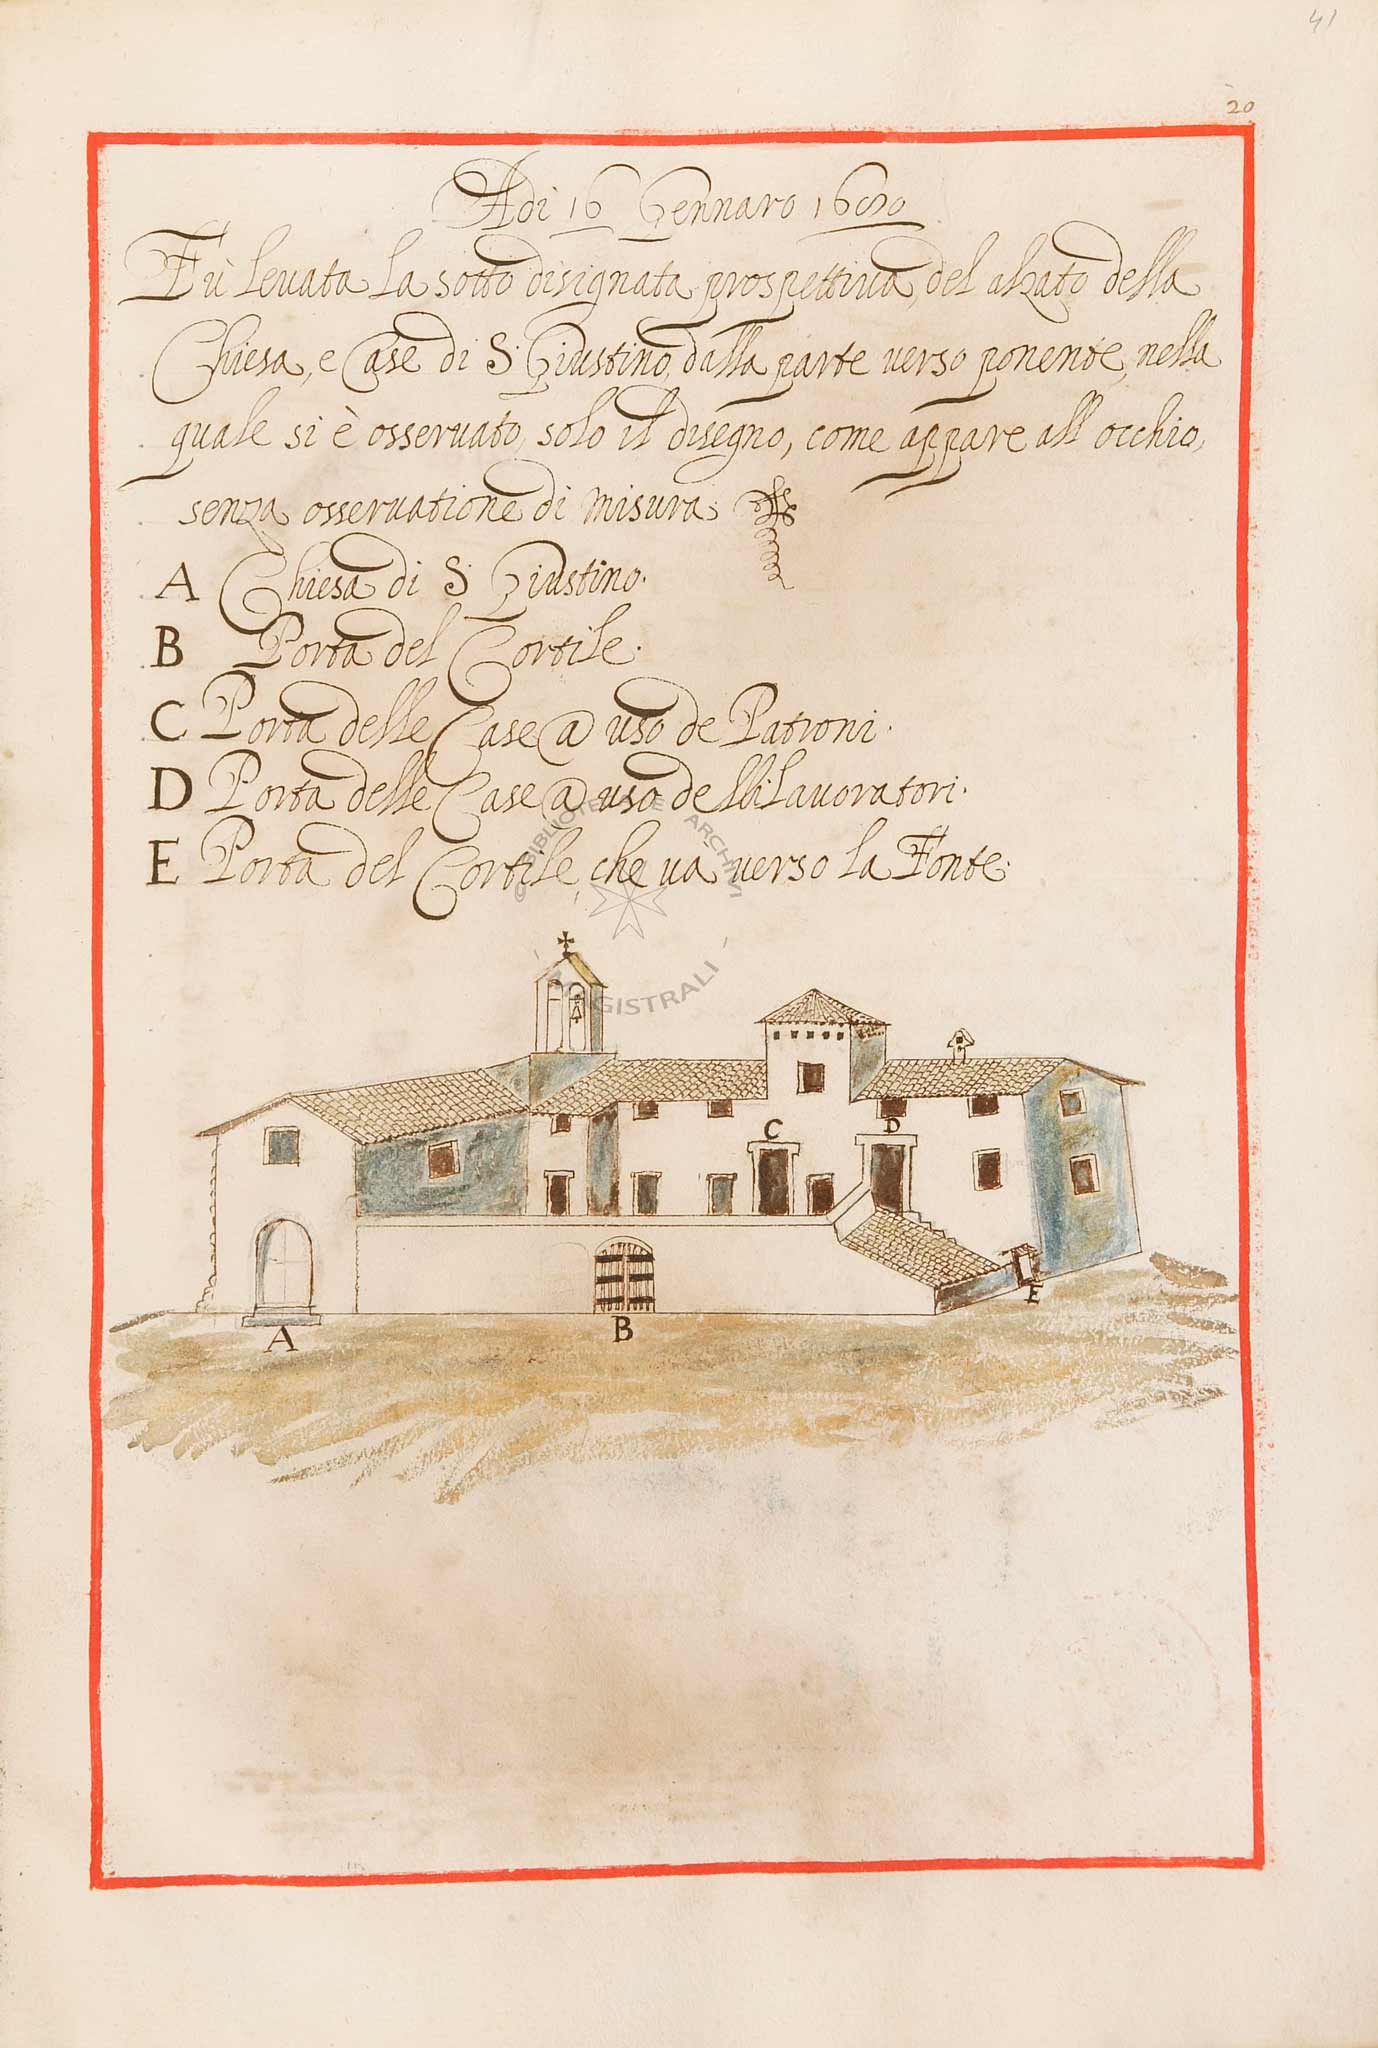 41
20
Adi 16 Gennaro
Fù levata la sotto disignata prospettiva, del alzato della
Chiesa, e Case di S. Giustino, dalla parte verso ponente, nella
quale si è osservato, solo il disegno, come appare all occhio,
senza osservatione di misura
A Chiesa di S. Giustino.
B Porta del Cortile.
C Porta delle Case @ uso de Patroni.
D Porta delle Case @ uso delli Lavoratori.
E Porta del Cortile, che va verso la Fonte.
BIBLIOTECHE E ARCHIVI
MAGISTRALI
C
D
E
A
B